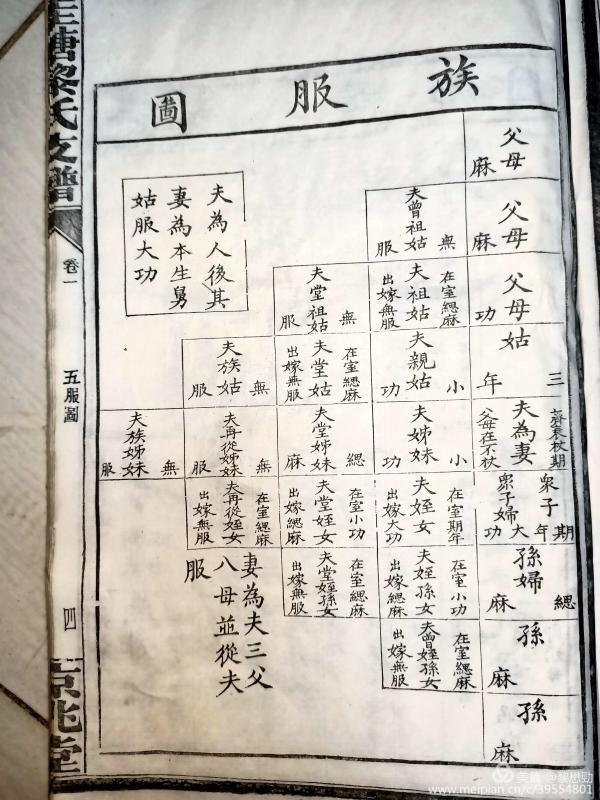 族服圖
父母
麻
父母
麻
父母
功
姑
三年
夫為妻
齊衰杖期
父母在不杖
眾子
期年
眾子婦
大功
孫婦
緦麻
孫
麻
孫
麻
夫曾祖姑
無服
夫祖姑
在室緦麻
出嫁無服
夫親姑
小功
夫姊妹
小功
夫姪女
在室期年
出嫁大功
夫姪孫女
在室小功
出嫁緦麻
夫曾姪孫女
在室緦麻
出嫁無服
夫堂祖姑
無服
夫堂姑
在室緦麻
出嫁無服
夫堂姊妹
緦麻
夫堂姪女
在室小功
出嫁緦麻
夫堂姪孫女
在室緦麻
出嫁無服
夫族姑
無服
夫再從姊妹
無服
夫再從姪女
在室緦麻
出嫁無服
夫族姊妹
無服
夫為人後其
妻為本生舅
姑服大功
妻為夫三父
八母並從夫
服
塘黎氏支譜
卷一
五服圖
四
京兆堂
美篇
www.meipian.cn/c/39554801